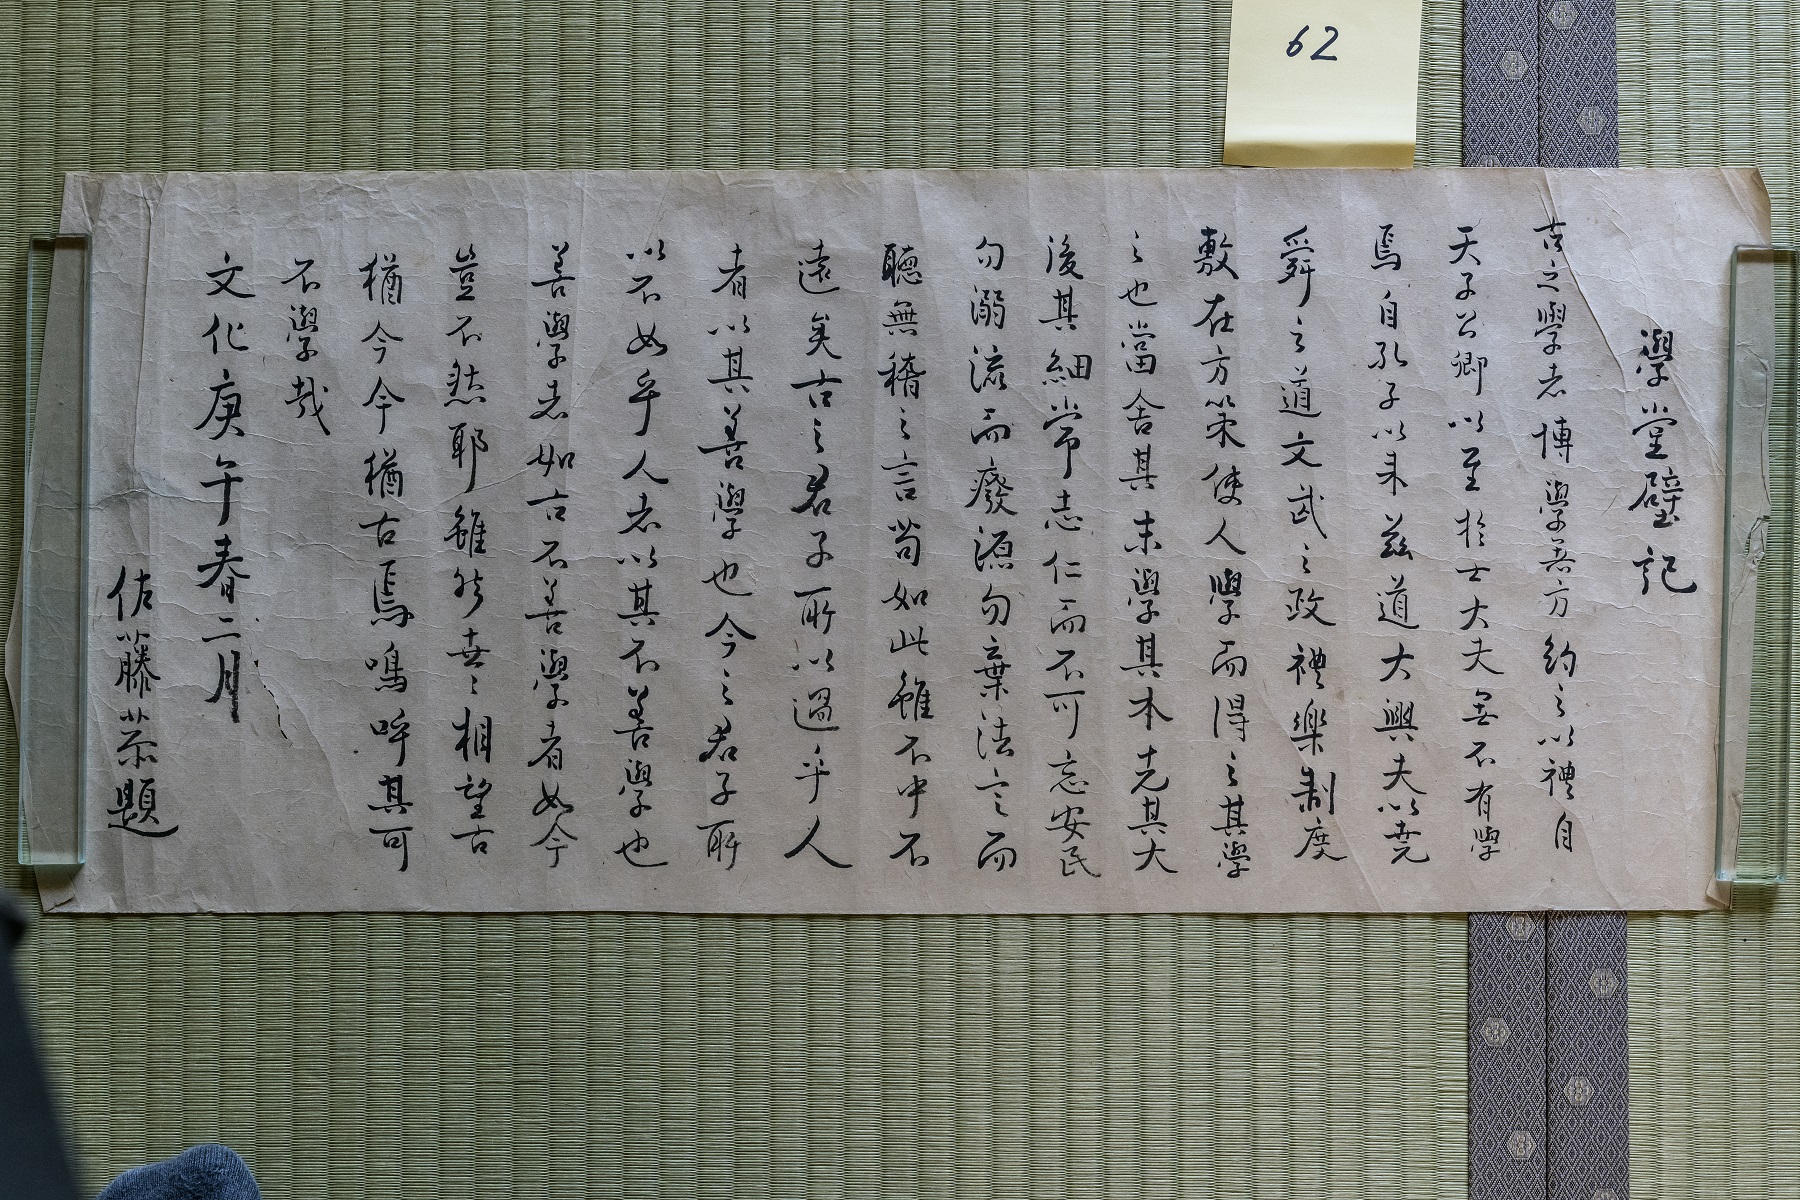 62
學堂壁記
古之學者博學無方約之以禮自
天子公卿以至於士大夫無不有學
焉自孔子以来茲道大興夫以堯
舜之道文武之政禮樂制度
敷在方策使人學而得之其學
之也當舍其末學其本先其大
後其細常志仁而不可忘安民
勿溺流而廢源勿棄法言而
聽無稽之言苟如此雖不中不
遠矣古之君子所以過乎人
者以其善學也今之君子所
以不如乎人者以其不善學也
善學者如古不善學者如今
豈不然耶雖然世世相望古
猶今今猶古焉嗚呼其可
不學哉
文化庚午春二月
佐藤 題